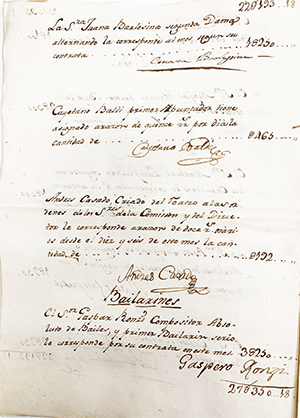 229193..18
La S.ra Juana Barlesina segunda Dama
alternante la corresponde al mes, segun su
contrata 1825o
Cayetano Balli primer Apuntador tiene
asignado a razon de quince r.s por dia la
cantidad de 8465
Cayetano Balli
Andres Casado, Criado del Teatro a las or
denes de los S.res de la Comision y del Direc
tor le corresponde a razon de doce r.s diari
os desde el diez y seis de este mes la can
tidad de 8192
Andres Casado
Bailarines
El S.r Gaspar Ronzi Compositor Abso
luto de Bailes, y primer Bailarin serio
le corresponde por su contrata en este mes. 3825o
Gaspero Ronzi
27835o..18